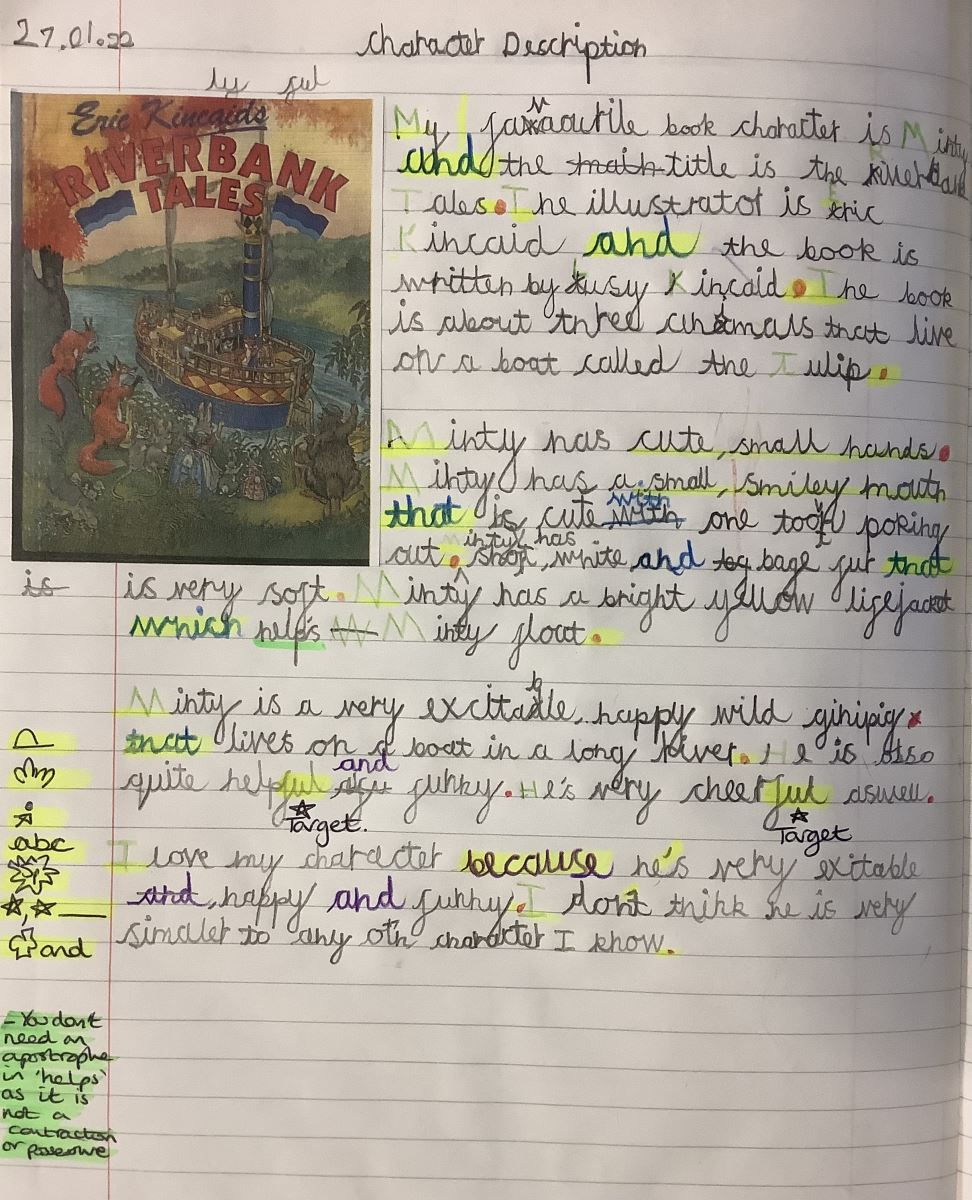 27.01.22
Character Description
ly ful
Eric Kincaids
RIVERBANK
TALES
My favaourite book character is Minty
and the main title is the Riverbank
Tales. The illustrator is eric
Kincaid and the book is
written by Lusy Kincaid. The book
is about three animals that live
on a boat called the Tulip.
Minty has cute, small hands.
Minty has a small, smiley mouth
that is cute with with one tooth poking
out. Minty has short, white and bage fur that
is is very soft. Minty has a bright yellow lifejacket
which help's Minty float.
Minty is a very excitable, happy wild ginipig
that lives on a boat in a long River. He is also
quite helpful and funny. He's very cheerful aswell.
Target. Target
abc
I love my character because he's very exitable
and, happy and funny. I don't think he is very
similer to any oth character I know.
and
- You don't
need an
apostrophe
in 'helps'
as it is
not a
contraction
or possessive